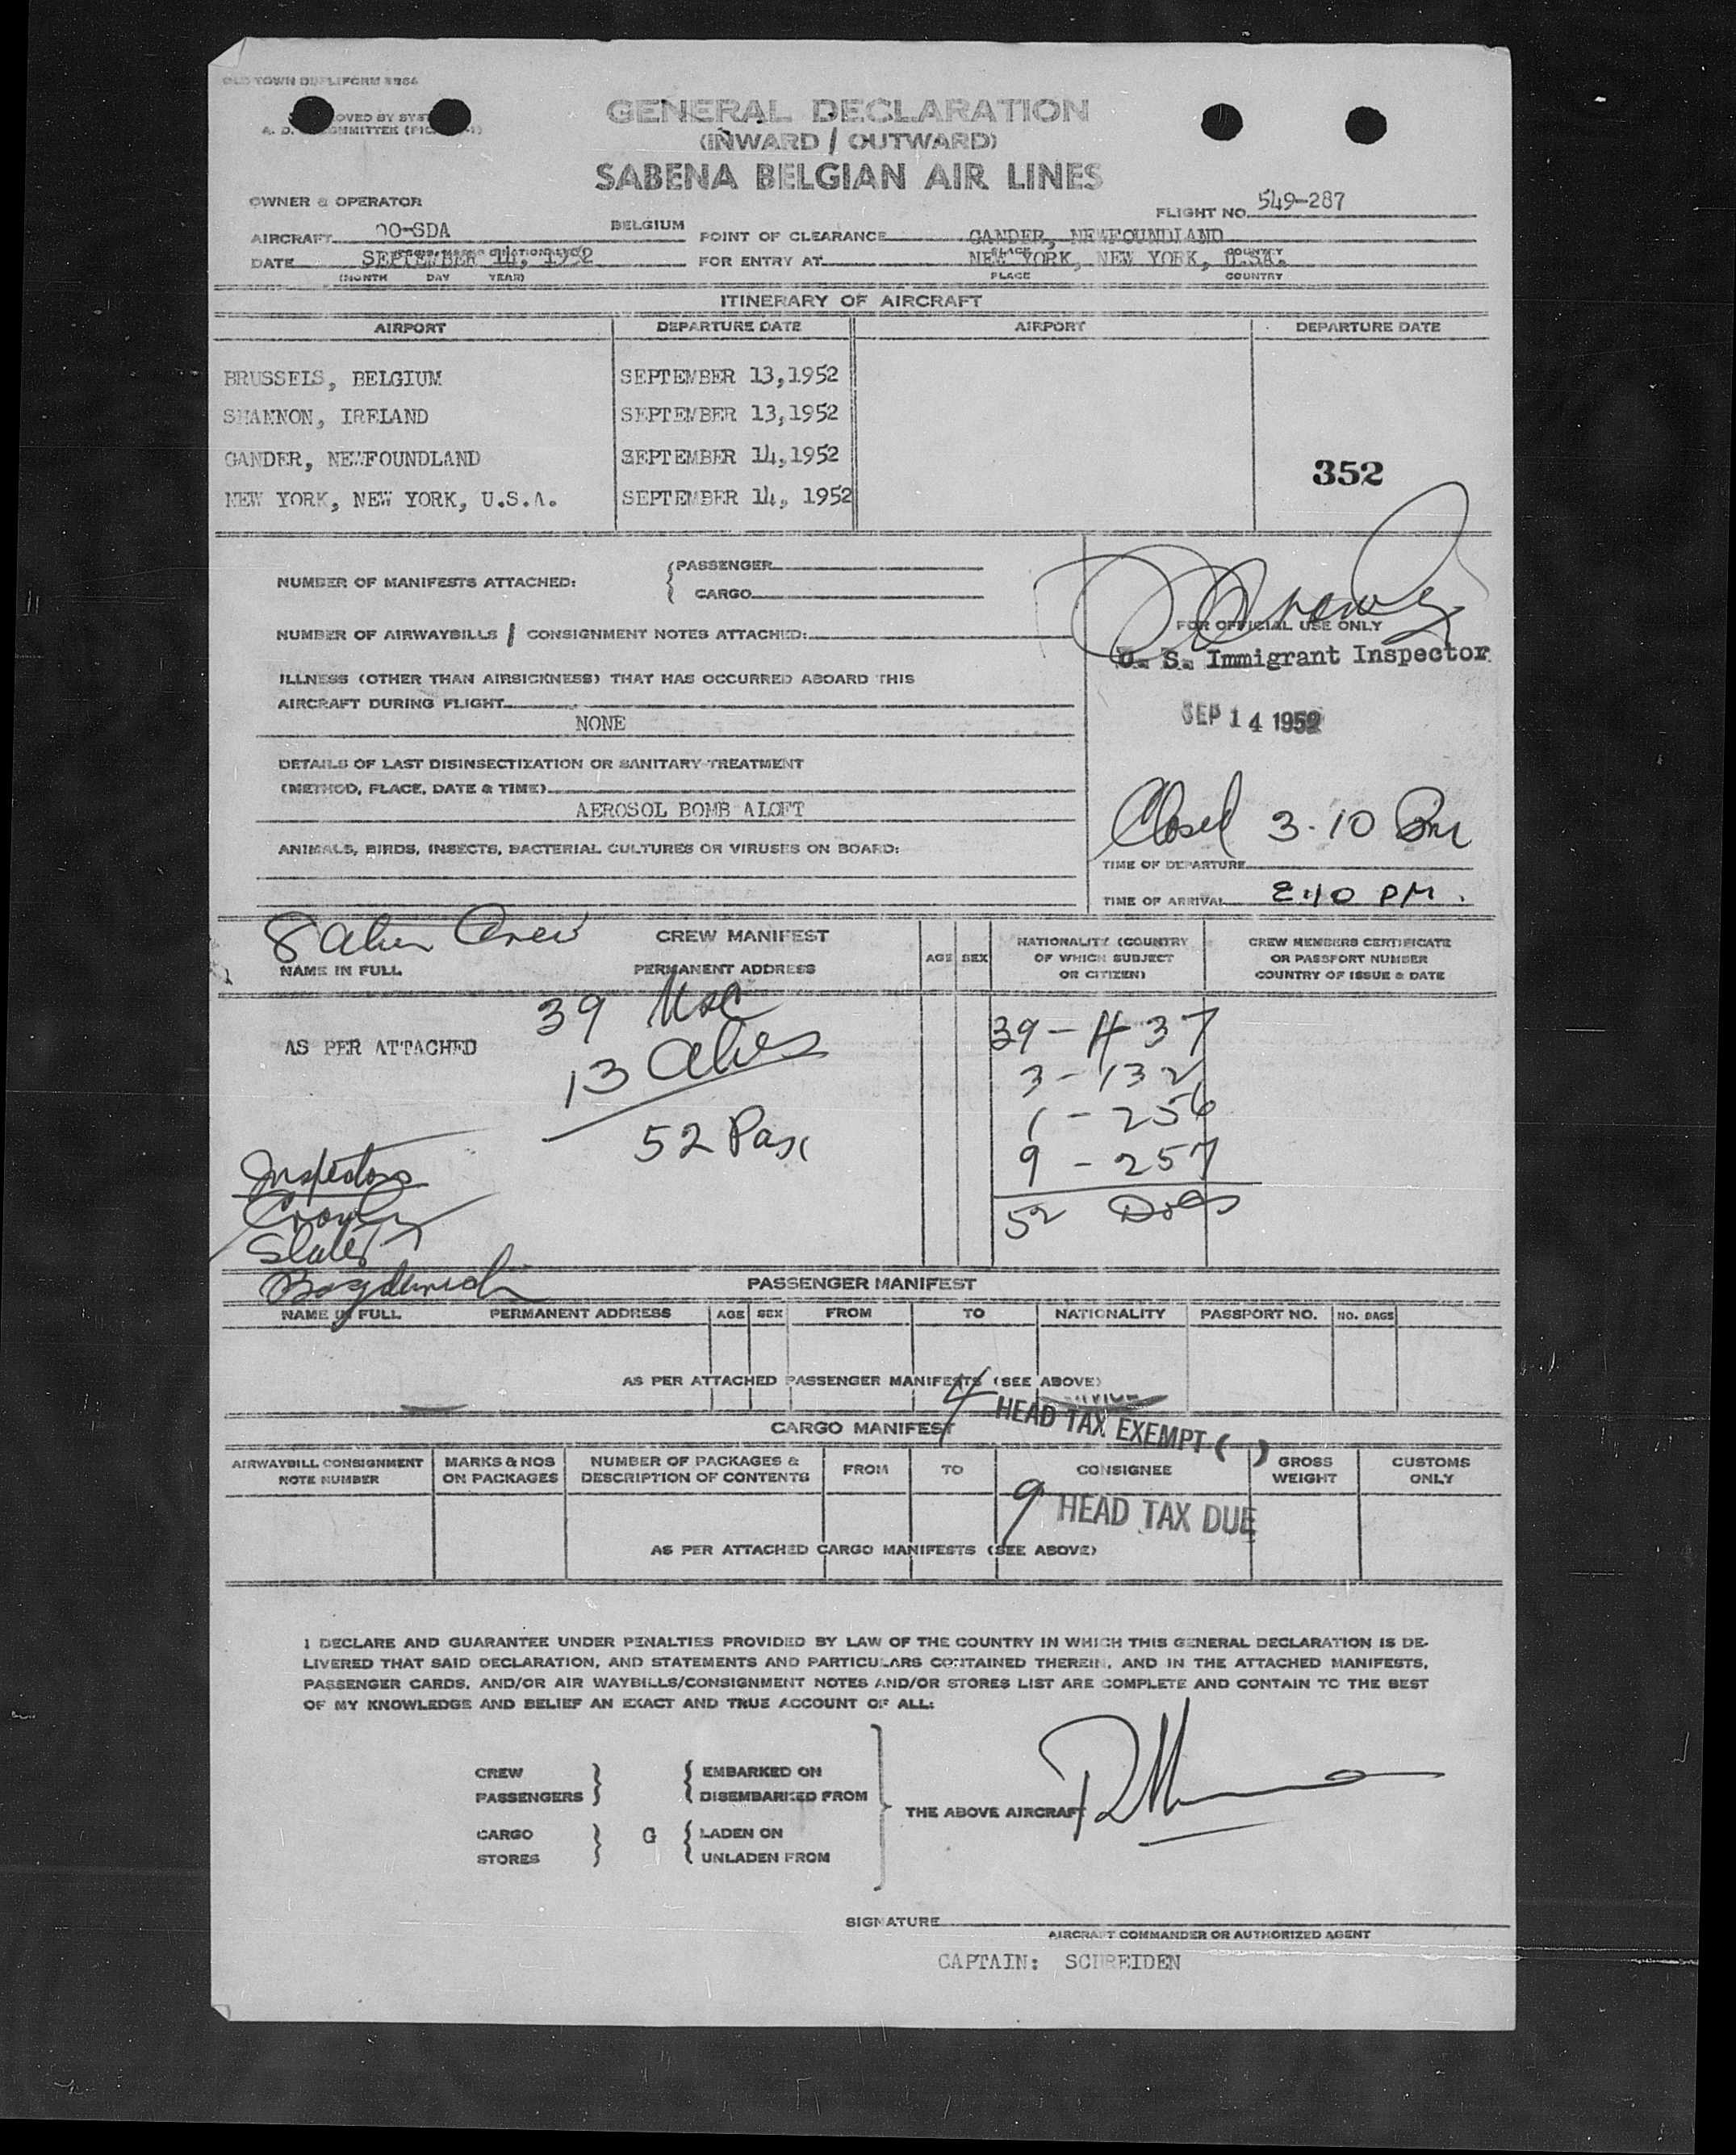 OLD TOWN DUPLIFORM
GENERAL DECLARATION
(INWARD / OUTWARD)
SABENA BELGIAN AIR LINES
OWNER & OPERATOR
FLIGHT NO. 549-287
AIRCRAFT OO-SDA BELGIUM
POINT OF CLEARANCE GANDER, NEWFOUNDLAND
PLACE COUNTRY
DATE SEPTEMBER 14, 1952
FOR ENTRY AT NEW YORK, NEW YORK, U.S.A.
(MONTH DAY YEAR)
PLACE COUNTRY
ITINERARY OF AIRCRAFT
AIRPORT DEPARTURE DATE AIRPORT DEPARTURE DATE
BRUSSELS, BELGIUM SEPTEMBER 13,1952
SHANNON, IRELAND SEPTEMBER 13,1952
GANDER, NEWFOUNDLAND SEPTEMBER 14,1952
352
NEW YORK, NEW YORK, U.S.A. SEPTEMBER 14, 1952
NUMBER OF MANIFESTS ATTACHED: { PASSENGER
CARGO
NUMBER OF AIRWAYBILLS / CONSIGNMENT NOTES ATTACHED:
FOR OFFICIAL USE ONLY
U. S. Immigrant Inspector
ILLNESS (OTHER THAN AIRSICKNESS) THAT HAS OCCURRED ABOARD THIS
AIRCRAFT DURING FLIGHT
NONE
SEP 14 1952
DETAILS OF LAST DISINSECTIZATION OR SANITARY TREATMENT
(METHOD, PLACE, DATE & TIME)
AEROSOL BOMB ALOFT
Closed 3.10 Pm
ANIMALS, BIRDS, INSECTS, BACTERIAL CULTURES OR VIRUSES ON BOARD:
TIME OF DEPARTURE
TIME OF ARRIVAL 2:10 PM.
8 alien Crew
CREW MANIFEST
NAME IN FULL PERMANENT ADDRESS AGE SEX NATIONALITY (COUNTRY OF WHICH SUBJECT OR CITIZEN) CREW MEMBERS CERTIFICATE OR PASSPORT NUMBER COUNTRY OF ISSUE & DATE
39 USC
AS PER ATTACHED
13 aliens
52 Pax
39 - 437
3 - 132
1 - 256
9 - 257
52 Docs
Inspectors
Slater
PASSENGER MANIFEST
NAME IN FULL PERMANENT ADDRESS AGE SEX FROM TO NATIONALITY PASSPORT NO. NO. BAGS
AS PER ATTACHED PASSENGER MANIFESTS (SEE ABOVE)
4 HEAD TAX EXEMPT ( )
CARGO MANIFEST
AIRWAYBILL CONSIGNMENT NOTE NUMBER MARKS & NOS ON PACKAGES NUMBER OF PACKAGES & DESCRIPTION OF CONTENTS FROM TO CONSIGNEE GROSS WEIGHT CUSTOMS ONLY
9 HEAD TAX DUE
AS PER ATTACHED CARGO MANIFESTS (SEE ABOVE)
I DECLARE AND GUARANTEE UNDER PENALTIES PROVIDED BY LAW OF THE COUNTRY IN WHICH THIS GENERAL DECLARATION IS DE-
LIVERED THAT SAID DECLARATION, AND STATEMENTS AND PARTICULARS CONTAINED THEREIN, AND IN THE ATTACHED MANIFESTS,
PASSENGER CARDS, AND/OR AIR WAYBILLS/CONSIGNMENT NOTES AND/OR STORES LIST ARE COMPLETE AND CONTAIN TO THE BEST
OF MY KNOWLEDGE AND BELIEF AN EXACT AND TRUE ACCOUNT OF ALL:
CREW } { EMBARKED ON
PASSENGERS DISEMBARKED FROM
THE ABOVE AIRCRAFT
CARGO } G { LADEN ON
STORES UNLADEN FROM
SIGNATURE
AIRCRAFT COMMANDER OR AUTHORIZED AGENT
CAPTAIN: SCHREIDEN